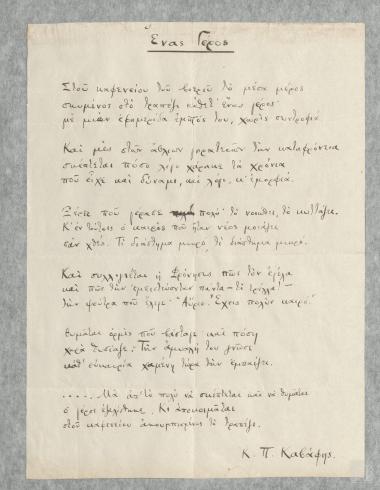 Ένας Γέρος
Στου καφενείου του βοερού το μέσα μέρος
σκυμένος στο τραπέζι κάθετ' ένας γέρος·
με μιαν εφημερίδα εμπρός του, χωρίς συντροφιά.
Και μες στων άθλιων γηρατειών την καταφρόνια
σκέπτεται πόσο λίγο χάρηκε τα χρόνια
που είχε και δύναμι, και λόγο, κ' εμορφιά.
Ξέρει που γέρασε πολύ· το νοιώθει, το κυττάζει.
Κ' εν τούτοις ο καιρός που ήταν νέος μοιάζει
σαν χθες. Τι διάστημα μικρό, τι διάστημα μικρό.
Και συλλογιέται η Φρόνησις πως τον εγέλα·
και πως την εμπιστεύονταν πάντα — τι τρέλλα! —
την ψεύτρα που έλεγε· «Αύριο. Έχεις πολύν καιρό.»
Θυμάται ορμές που βάσταγε· και πόση
χαρά θυσίαζε. Την άμυαλή του γνώσι
κάθ' ευκαιρία χαμένη τώρα την εμπαίζει.
..... Μα απ' το πολύ να σκέπτεται και να θυμάται
ο γέρος εζαλίσθηκε. Κι αποκοιμάται
στου καφενείου ακουμπισμένος το τραπέζι.
Κ. Π. Καβάφης.